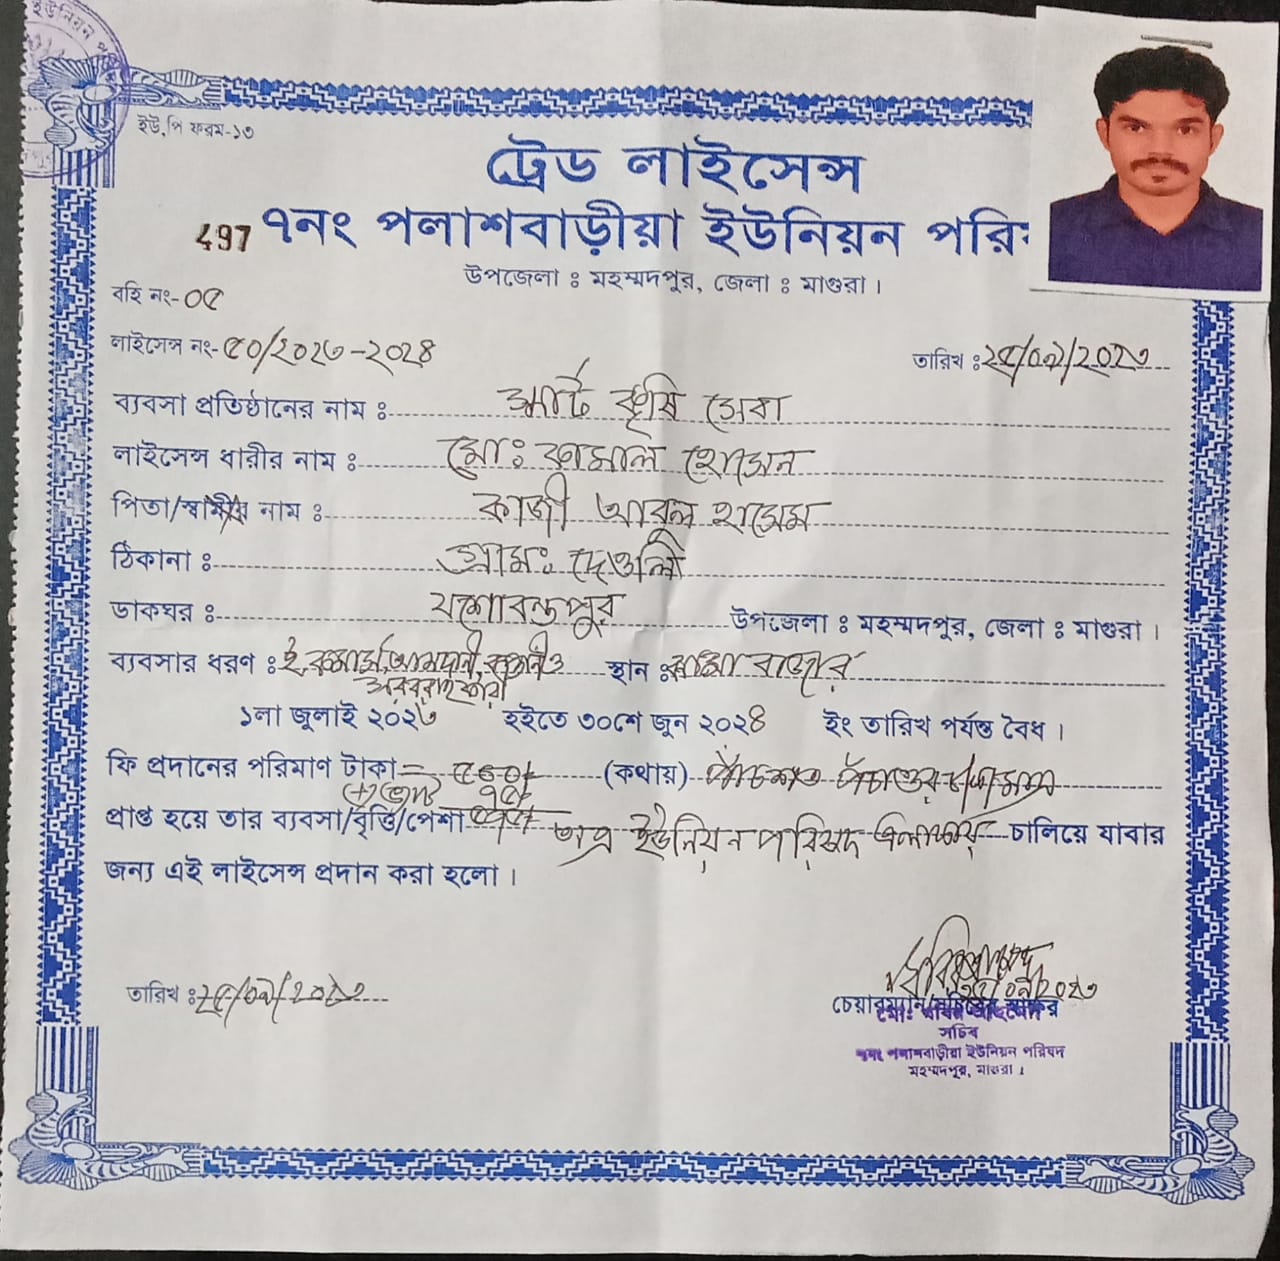 ইউনিয়ন
ইউ,পি ফরম-১৩
ট্রেড লাইসেন্স
497 ৭নং পলাশবাড়ীয়া ইউনিয়ন পরি
উপজেলা ঃ মহম্মদপুর, জেলা ঃ মাগুরা ।
বহি নং- ০৫
লাইসেন্স নং- ৫০/২০২৩-২০২৪ তারিখ ঃ ২৫/০৯/২০২৩
ব্যবসা প্রতিষ্ঠানের নাম ঃ স্মার্ট কৃষি সেবা
লাইসেন্স ধারীর নাম ঃ মোঃ কামাল হোসেন
পিতা/স্বামীর নাম ঃ কাজী আবুল হাসেম
ঠিকানা ঃ গ্রামঃ দেওলী
ডাকঘর ঃ যশোবন্তপুর উপজেলা ঃ মহম্মদপুর, জেলা ঃ মাগুরা ।
ব্যবসার ধরণ ঃ ই,কমার্স,আমদানী,রপ্তানী ও স্থান ঃ বাজার
সরবরাহকারী
১লা জুলাই ২০২৩ হইতে ৩০শে জুন ২০২৪ ইং তারিখ পর্যন্ত বৈধ ।
ফি প্রদানের পরিমাণ টাকা = ৫০০/- (কথায়) পাঁচশত পঁচাত্তর টাকা মাত্র
(+) ভ্যাট ৭৫/-
প্রাপ্ত হয়ে তার ব্যবসা/বৃত্তি/পেশা ৫৭৫/- অত্র ইউনিয়ন পরিষদ এলাকায় চালিয়ে যাবার
জন্য এই লাইসেন্স প্রদান করা হলো ।
২৫/০৯/২০২৩
তারিখ ঃ ২৫/০৯/২০২৩ চেয়ারম্যান/সচিবের স্বাক্ষর
সচিব
৭নং পলাশবাড়ীয়া ইউনিয়ন পরিষদ
মহম্মদপুর, মাগুরা ।